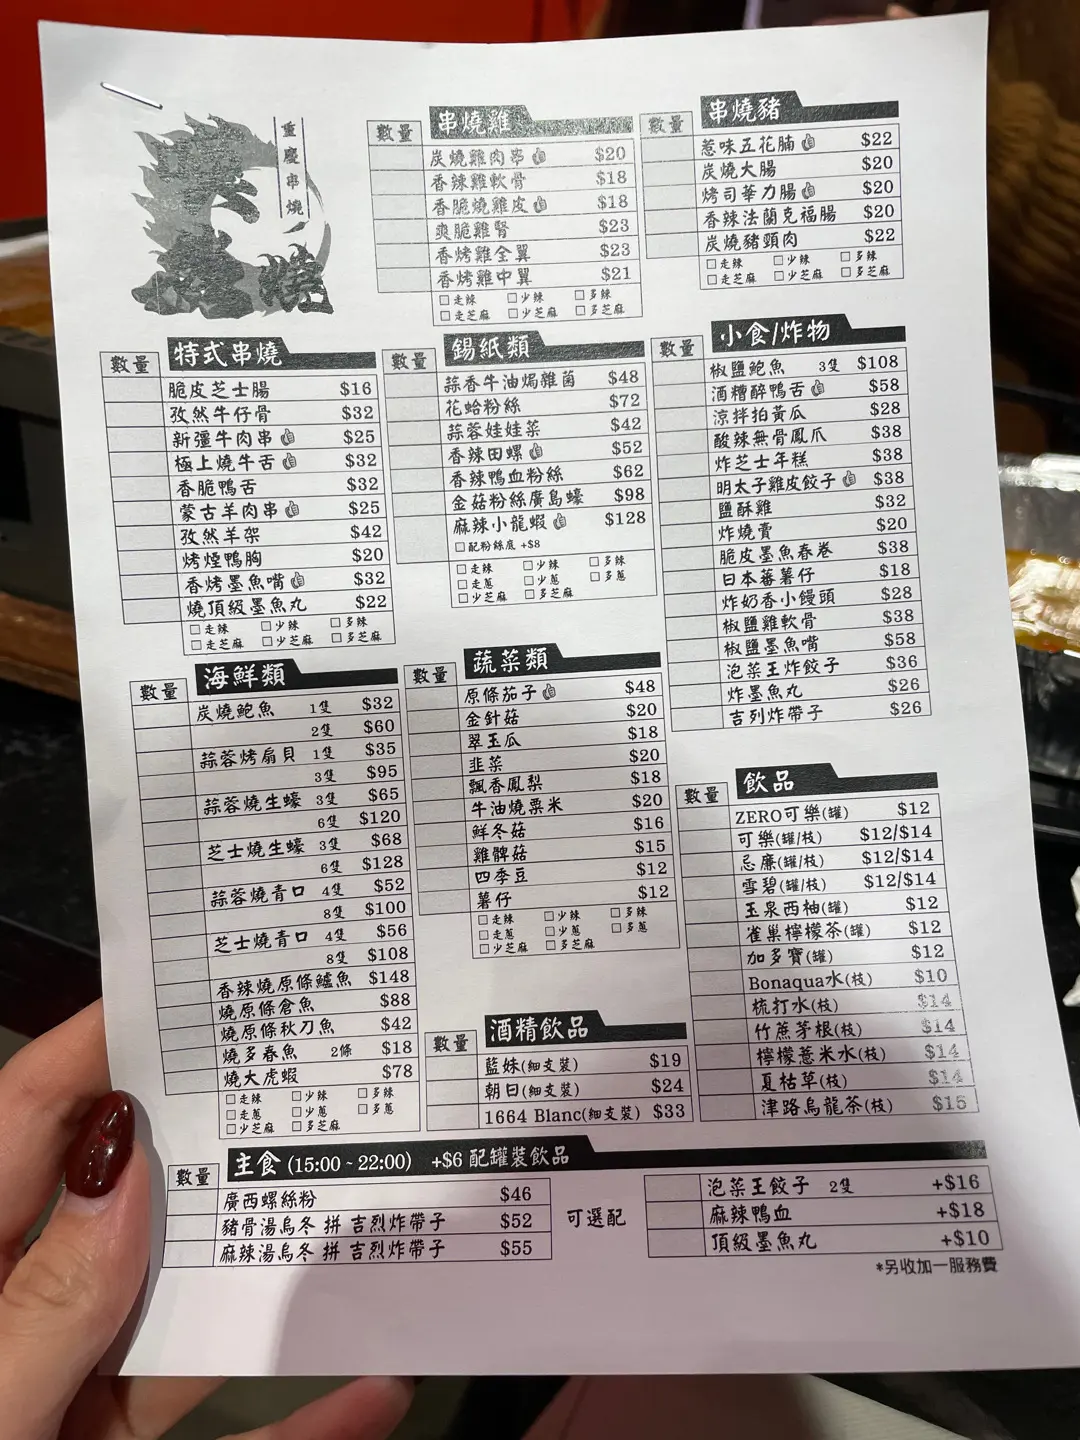 重慶串燒
燒
數量 串燒雞
炭燒雞肉串 $20
香辣雞軟骨 $18
香脆燒雞皮 $18
爽脆雞腎 $23
香烤雞全翼 $23
香烤雞中翼 $21
走辣 少辣 多辣
走芝麻 少芝麻 多芝麻
數量 串燒豬
惹味五花腩 $22
炭燒大腸 $20
烤司華力腸 $20
香辣法蘭克福腸 $20
炭燒豬頸肉 $22
走辣 少辣 多辣
走芝麻 少芝麻 多芝麻
數量 特式串燒
脆皮芝士腸 $16
孜然牛仔骨 $32
新疆牛肉串 $25
極上燒牛舌 $32
香脆鴨舌 $32
蒙古羊肉串 $25
孜然羊架 $42
烤煙鴨胸 $20
香烤墨魚嘴 $32
燒頂級墨魚丸 $22
走辣 少辣 多辣
走芝麻 少芝麻 多芝麻
數量 錫紙類
蒜香牛油焗雜菌 $48
花蛤粉絲 $72
蒜蓉娃娃菜 $42
香辣田螺 $52
香辣鴨血粉絲 $62
金菇粉絲廣島蠔 $98
麻辣小龍蝦 $128
配粉絲底 +$8
走辣 少辣 多辣
走蔥 少蔥 多蔥
少芝麻 多芝麻
數量 小食/炸物
椒鹽鮑魚 3隻 $108
酒糟醉鴨舌 $58
涼拌拍黃瓜 $28
酸辣無骨鳳爪 $38
炸芝士年糕 $38
明太子雞皮餃子 $38
鹽酥雞 $32
炸燒賣 $20
脆皮墨魚春卷 $38
日本蕃薯仔 $18
炸奶香小饅頭 $28
椒鹽雞軟骨 $38
椒鹽墨魚嘴 $58
泡菜王炸餃子 $36
炸墨魚丸 $26
吉列炸帶子 $26
數量 海鮮類
炭燒鮑魚 1隻 $32
2隻 $60
蒜蓉烤扇貝 1隻 $35
3隻 $95
蒜蓉燒生蠔 3隻 $65
6隻 $120
芝士燒生蠔 3隻 $68
6隻 $128
蒜蓉燒青口 4隻 $52
8隻 $100
芝士燒青口 4隻 $56
8隻 $108
香辣燒原條鱸魚 $148
燒原條倉魚 $88
燒原條秋刀魚 $42
燒多春魚 2條 $18
燒大虎蝦 $78
走辣 少辣 多辣
走蔥 少蔥 多蔥
少芝麻 多芝麻
數量 蔬菜類
原條茄子 $48
金針菇 $20
翠玉瓜 $18
韭菜 $20
飄香鳳梨 $18
牛油燒粟米 $20
鮮冬菇 $16
雞髀菇 $15
四季豆 $12
薯仔 $12
走辣 少辣 多辣
走蔥 少蔥 多蔥
少芝麻 多芝麻
數量 飲品
ZERO可樂(罐) $12
可樂(罐/枝) $12/$14
忌廉(罐/枝) $12/$14
雪碧(罐/枝) $12/$14
玉泉西柚(罐) $12
雀巢檸檬茶(罐) $12
加多寶(罐) $12
Bonaqua水(枝) $10
梳打水(枝) $14
竹蔗茅根(枝) $14
檸檬薏米水(枝) $14
夏枯草(枝) $14
津路烏龍茶(枝) $15
數量 酒精飲品
藍妹(細支裝) $19
朝日(細支裝) $24
1664 Blanc(細支裝) $33
數量 主食 (15:00 ~ 22:00) +$6 配罐裝飲品
廣西螺絲粉 $46
豬骨湯烏冬 拼 吉烈炸帶子 $52
麻辣湯烏冬 拼 吉烈炸帶子 $55
可選配
泡菜王餃子 2隻 +$16
麻辣鴨血 +$18
頂級墨魚丸 +$10
*另收加一服務費